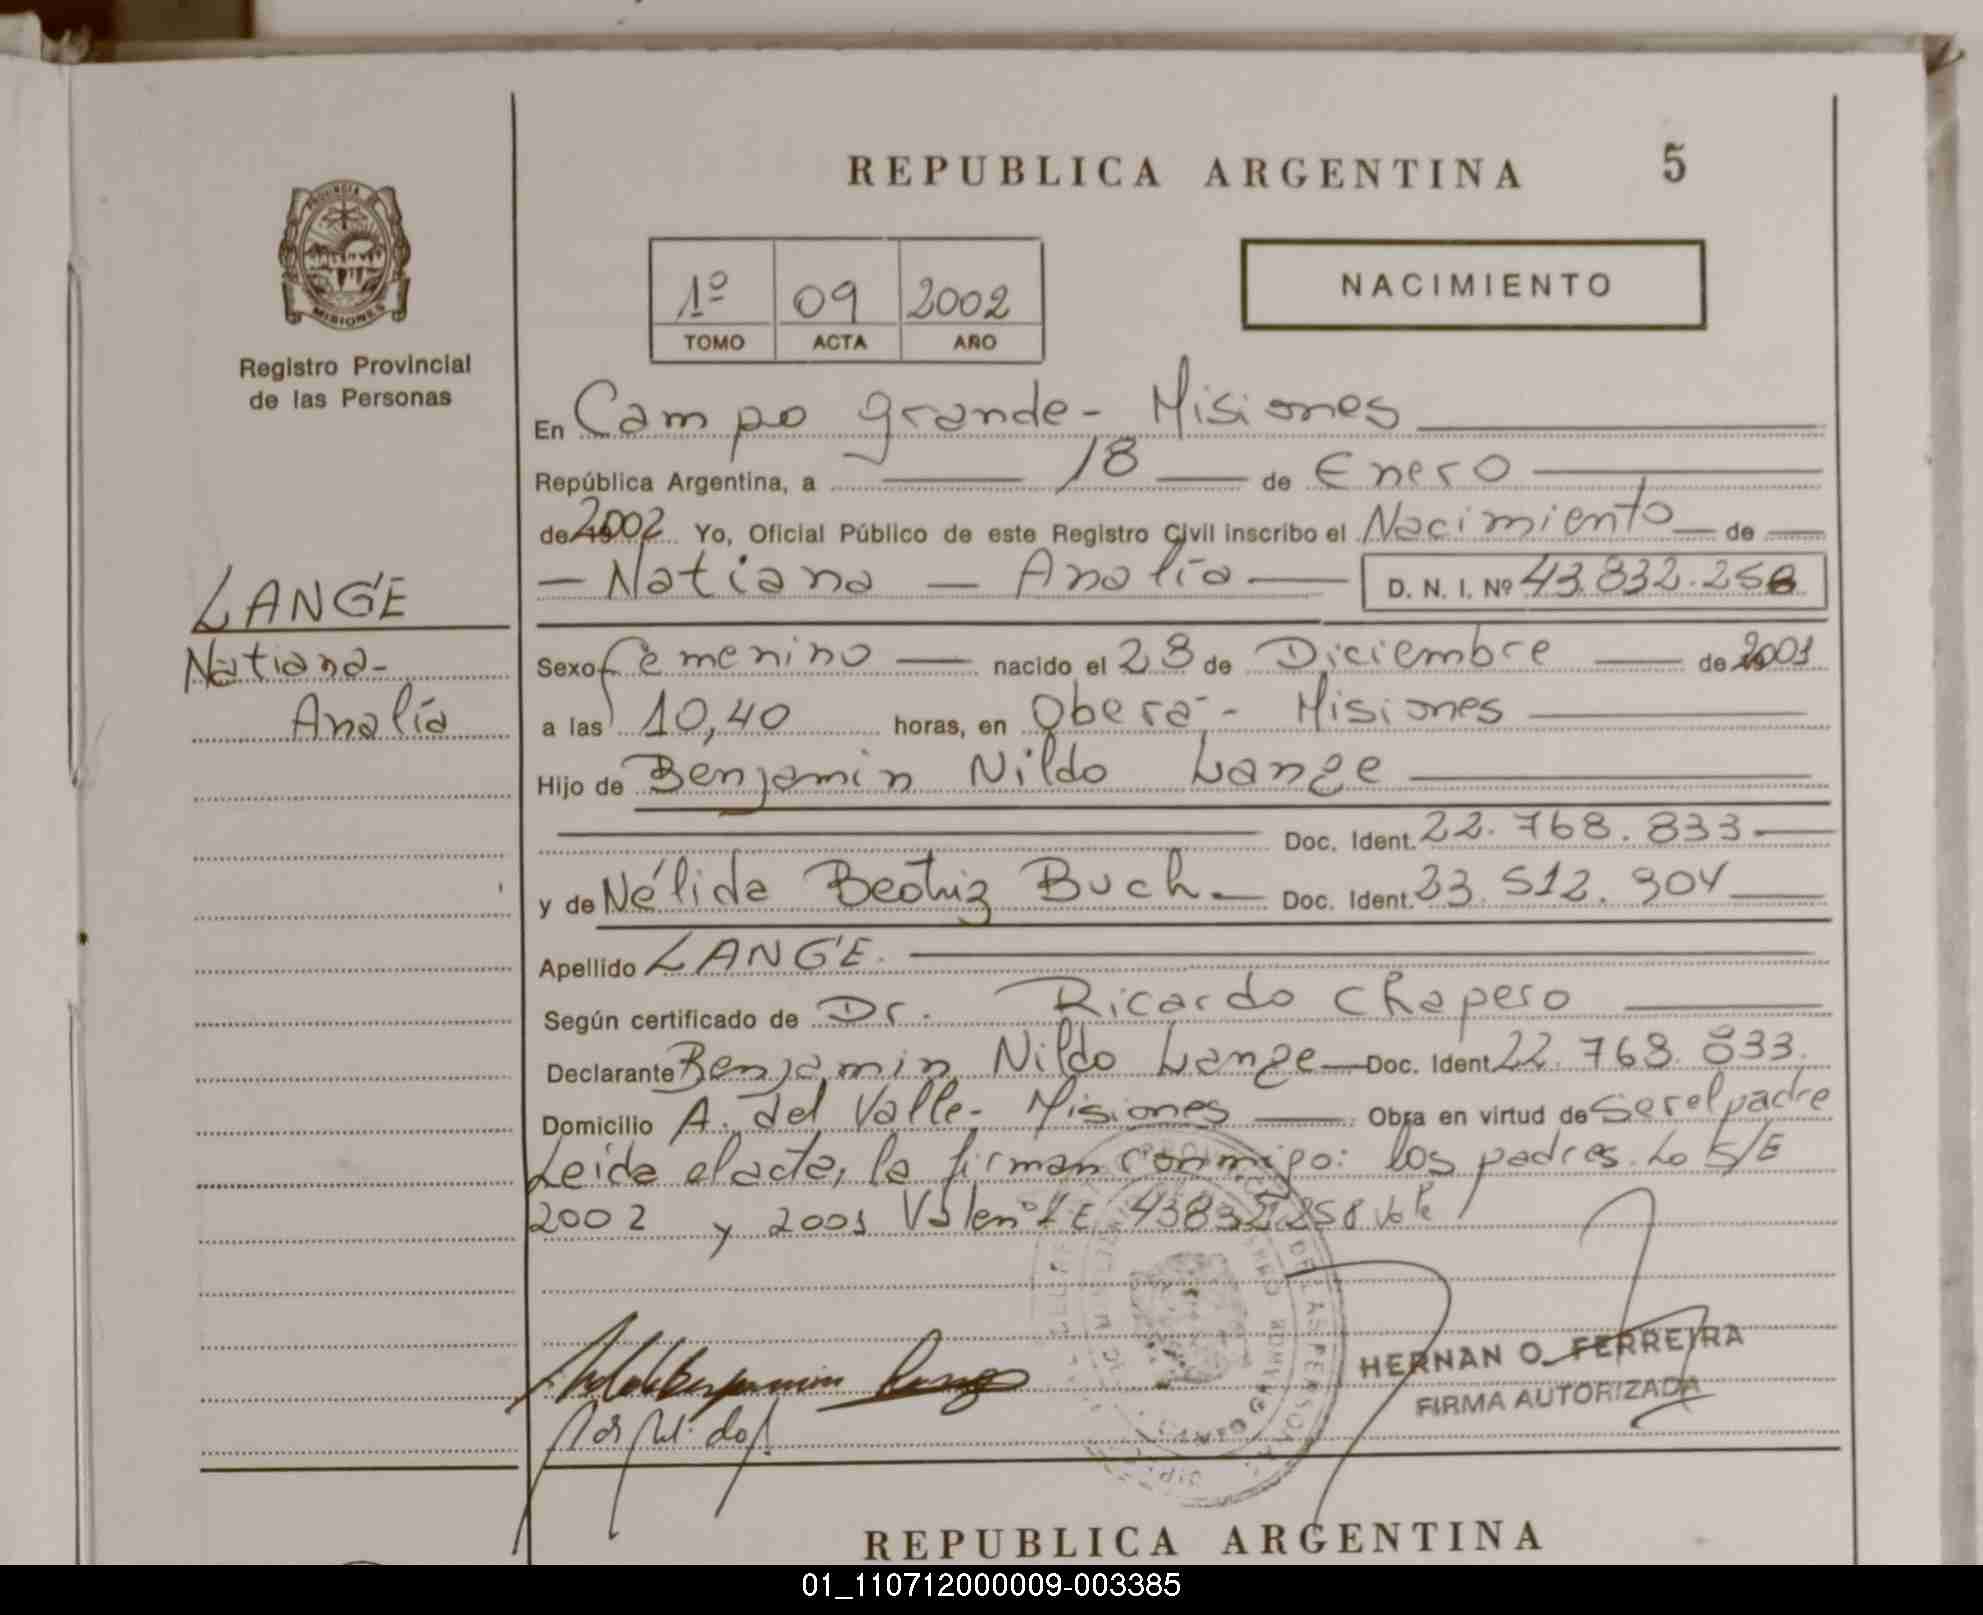 REPUBLICA ARGENTINA 5
PROVINCIA DE
MISIONES
Registro Provincial
de las Personas
1º 09 2002
TOMO ACTA AÑO
NACIMIENTO
En Campo grande - Misiones
República Argentina, a 18 de Enero
de 2002 Yo, Oficial Público de este Registro Civil inscribo el Nacimiento de
Natiana Analía D. N. I. Nº 43.832.258
LANGE
Natiana-
Analía
Sexo Femenino nacido el 28 de Diciembre de 2001
a las 10,40 horas, en Oberá - Misiones
Hijo de Benjamin Nildo Lange
Doc. Ident. 22.768.833
y de Nélida Beatriz Buch Doc. Ident. 33.512.904
Apellido LANGE.
Según certificado de Dr. Ricardo Chapero
Declarante Benjamin Nildo Lange Doc. Ident. 22.768.833.
Domicilio A. del Valle- Misiones Obra en virtud de Ser el padre
Leída el acta, la firman conmigo: los padres. Lo S/E
2002 y 2001 Valen S/E 43832258 Vale
HERNAN O. FERREIRA
FIRMA AUTORIZADA
REPUBLICA ARGENTINA
01_110712000009-003385